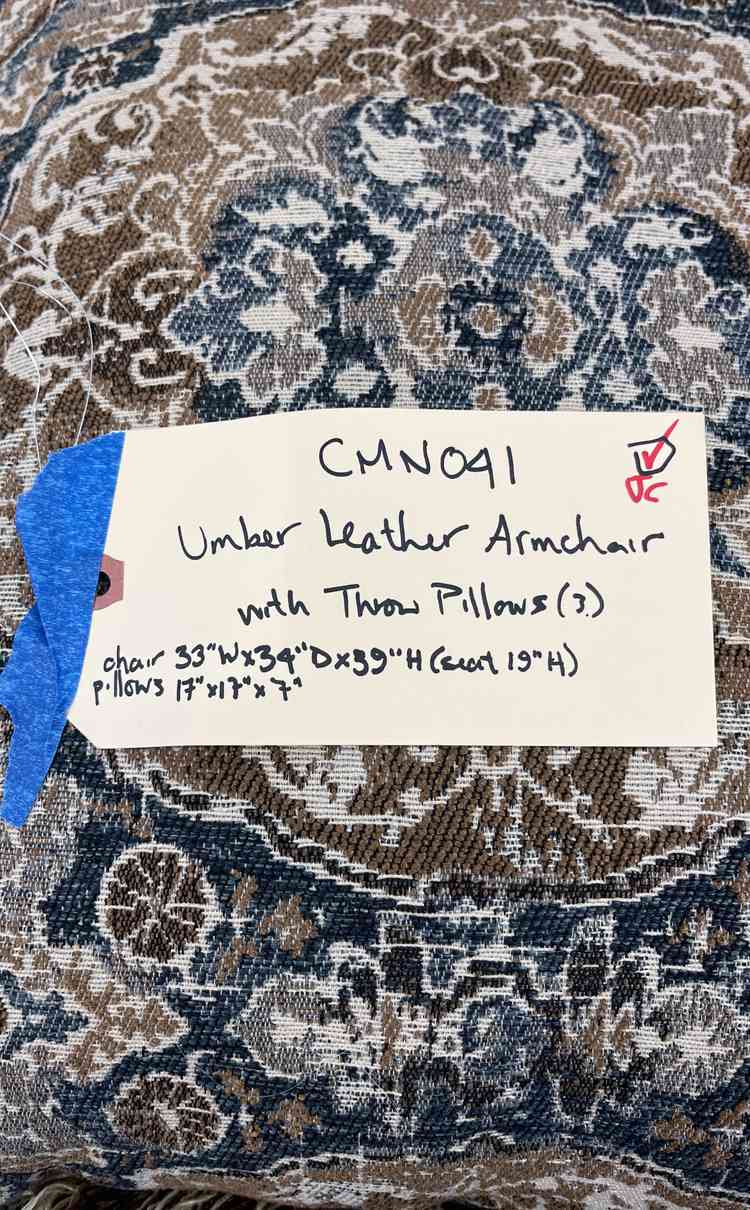 CMN041
JC
Umber Leather Armchair
with Throw Pillows (3)
chair 33"W x 34"D x 39"H (seat 19"H)
pillows 17"x17"x7"